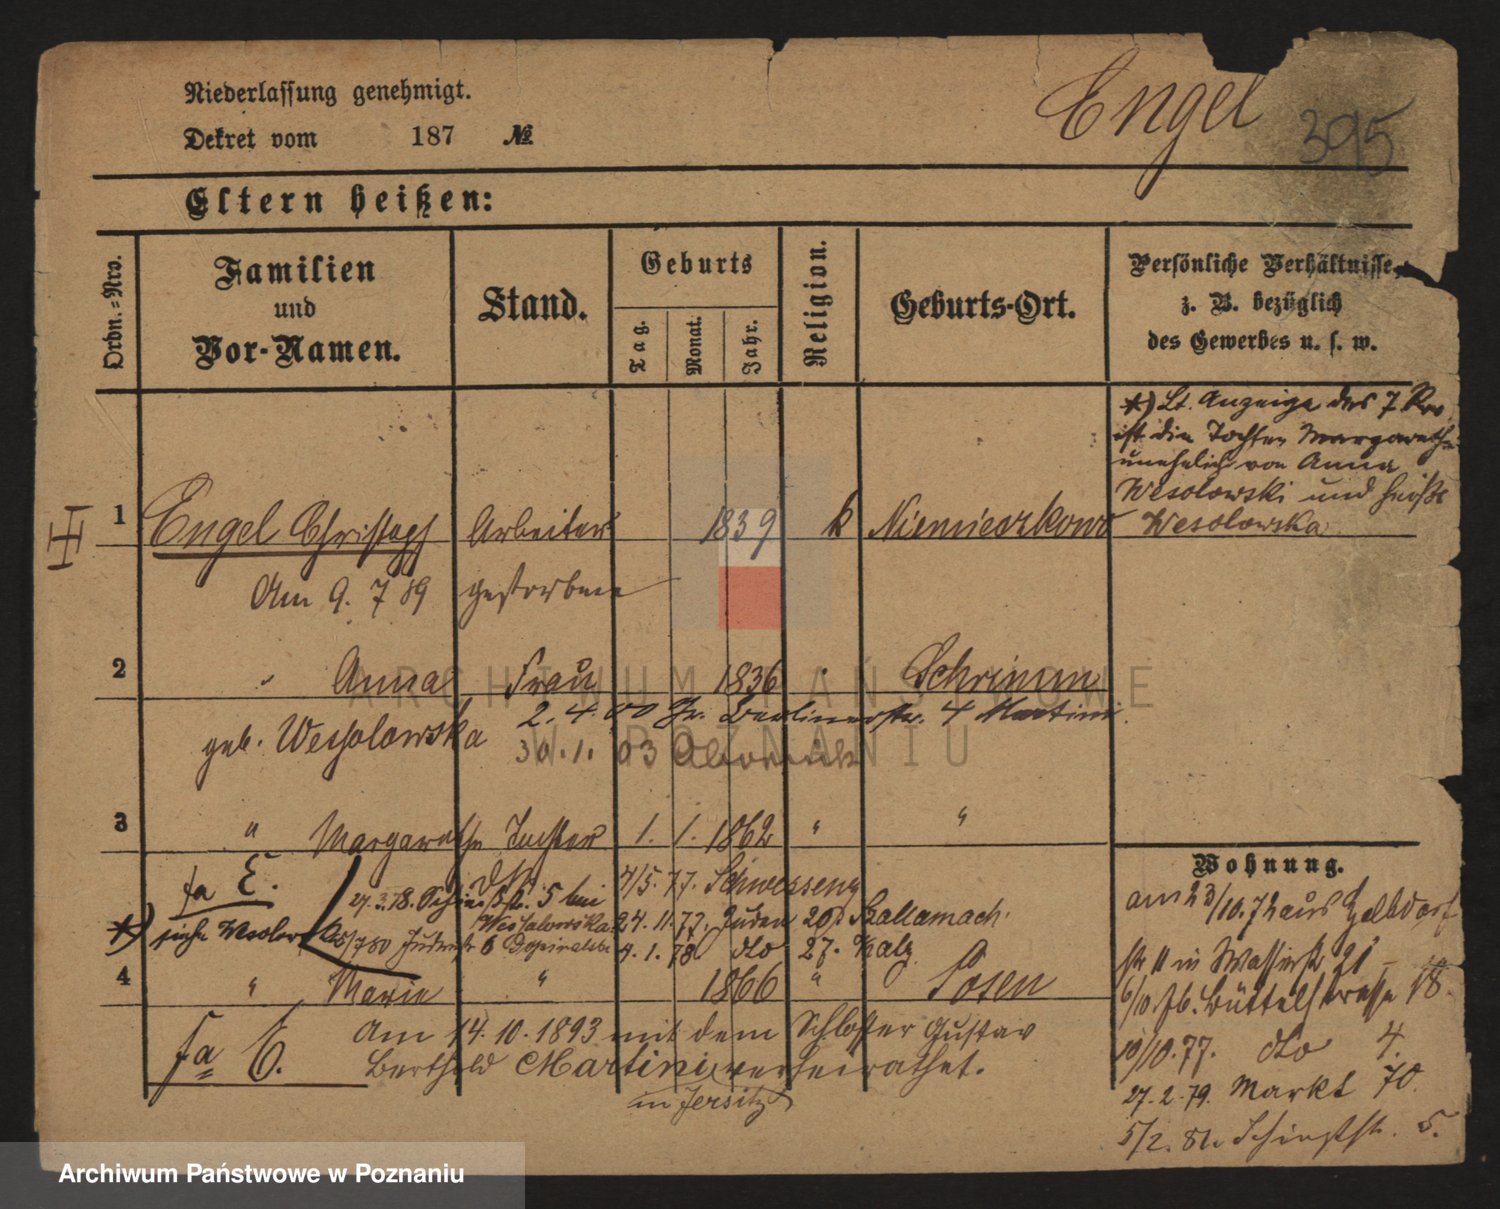 Niederlassung genehmigt.
Dekret vom 187 №
Engel
395
Eltern heißen:
Ordn.-Nro.
Familien
und
Vor-Namen.
Stand.
Geburts
Tag.
Monat.
Jahr.
Religion.
Geburts-Ort.
Persönliche Verhältnisse,
z. B. bezüglich
des Gewerbes u. s. w.
*) Lt. Anzeige des 7 Rev
ist die Tochter Margarethe
unehelich von Anna
Wesolowski und heißt
Wesolowska
1 Engel Christoph Arbeiter 1839 k Niemieczkowo
Am 9. 7 89 gestorben
2 " Anna Frau 1836 " Schrimm
geb. Wessolowska
2. 4. 00 Gr. Berlinerstr. 4 Martini.
30. 1. 03
3 " Margarethe Tochter 1. 1. 1862 " "
fa E.
7/5. 77. Schwesseng
27. 3. 78. 5 bei
*) siehe Wesolowska
Wessolowska 24. 11. 77. Juden 20 Kallamach.
6 4. 1. 78 dto 27. Katz
4 " Marie " 1866 " Posen
fa E.
Am 14. 10. 1893 mit dem Schlosser Gustav
Berthold Martini verheirathet.
in Jersitz
Wohnung.
am 23/10. 72 aus Geldorf
str 11 in Wasserstr 21
6/10. 76. Büttelstrasse 18.
10/10. 77. dto 4.
27. 2. 79. Markt 70.
5/2. 81. 5.
ARCHIWUM PAŃSTWOWE
W POZNANIU
Archiwum Państwowe w Poznaniu